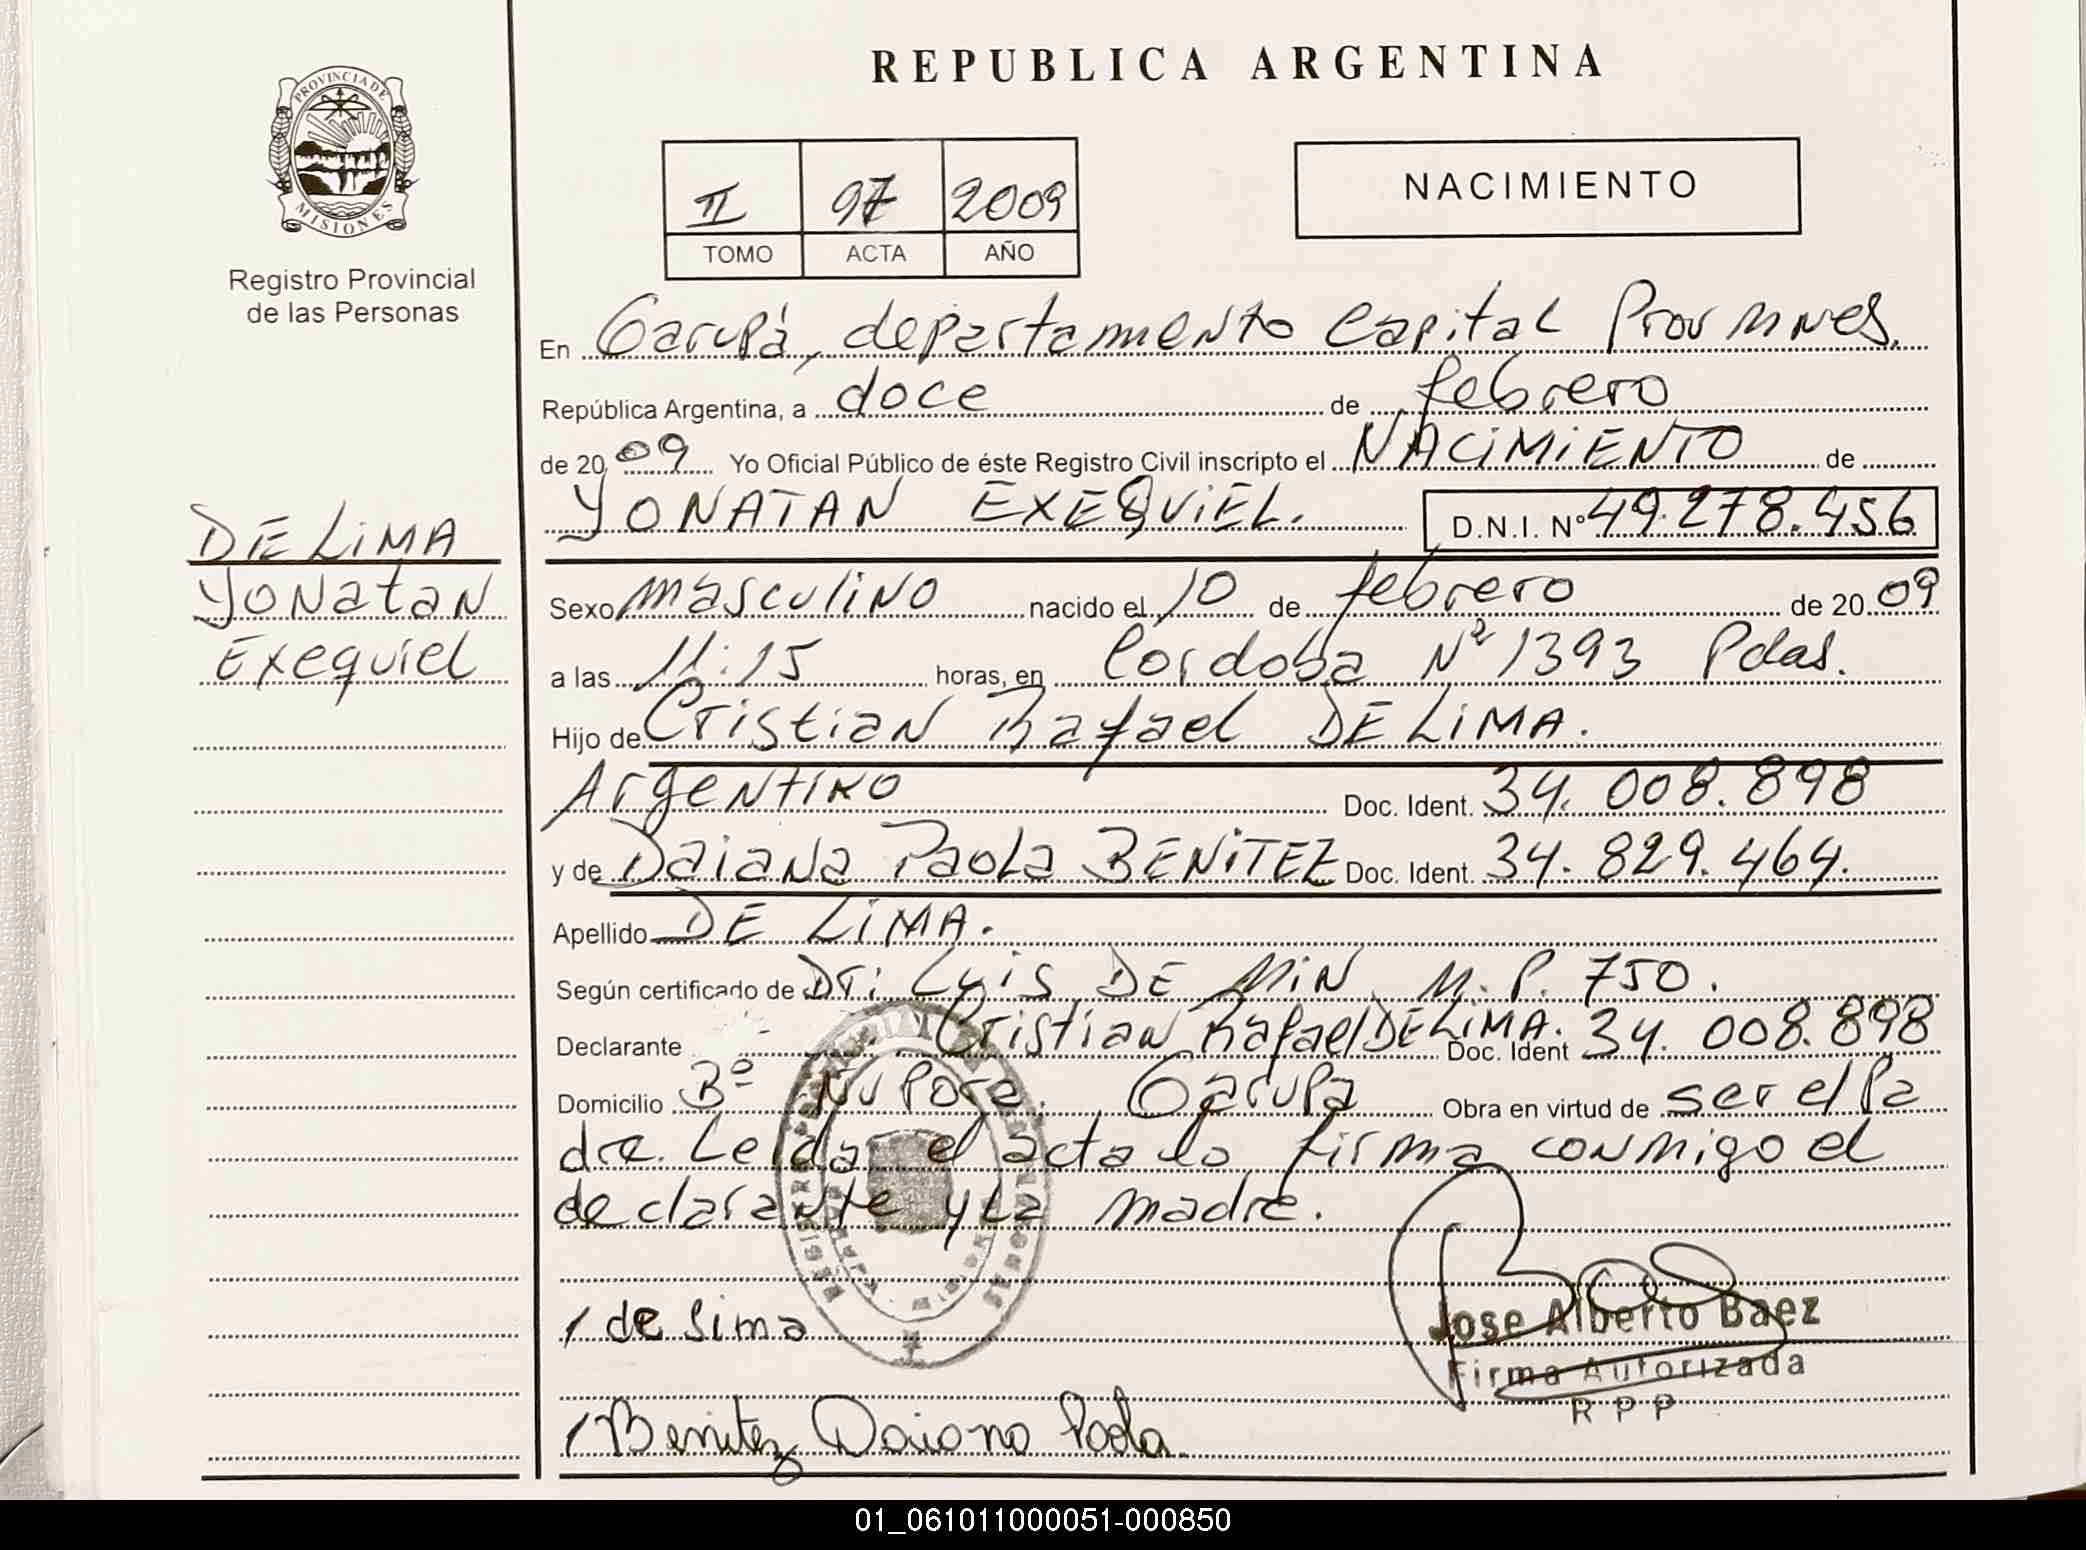 REPUBLICA ARGENTINA
PROVINCIA DE
MISIONES
Registro Provincial
de las Personas
II 97 2009
TOMO ACTA AÑO
NACIMIENTO
En Garupá, departamento Capital Prov Mnes.
República Argentina, a doce de febrero
de 2009 Yo Oficial Público de éste Registro Civil inscripto el NACIMIENTO de
YONATAN EXEQUIEL. D.N.I. Nº 49.278.456
DE LIMA
Yonatan
Exequiel
Sexo masculino nacido el 10 de febrero de 2009
a las 11:15 horas, en Cordoba Nº 1393 Pdas.
Hijo de Cristian Rafael DE LIMA.
Argentino Doc. Ident. 34.008.898
y de Daiana Paola BENITEZ Doc. Ident. 34.829.464.
Apellido DE LIMA.
Según certificado de Dr: Luis DE MIN M.P. 750.
Declarante Cristian Rafael DE LIMA. Doc. Ident 34.008.898
Domicilio Bº Ñu Pora. Garupa Obra en virtud de ser el pa
dre. Leida el acta la firma conmigo el
declarante y la madre.
de lima
Jose Alberto Baez
Firma Autorizada
RPP
Benitez Daiana Paola
01_061011000051-000850